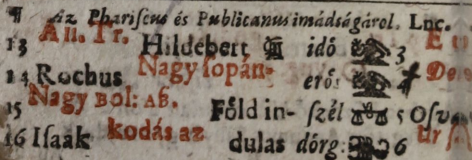 ¶ Az Phariſeus és Publicanus imádságárol. Luc.
13 An. Tr. Hildebert idő 3
14 Rochus Nagy ſopán- erős 4
15 Nagy Bol: Aſ. Főld in- ſzél 5
16 Iſaak kodás az dulas dőrg: 6